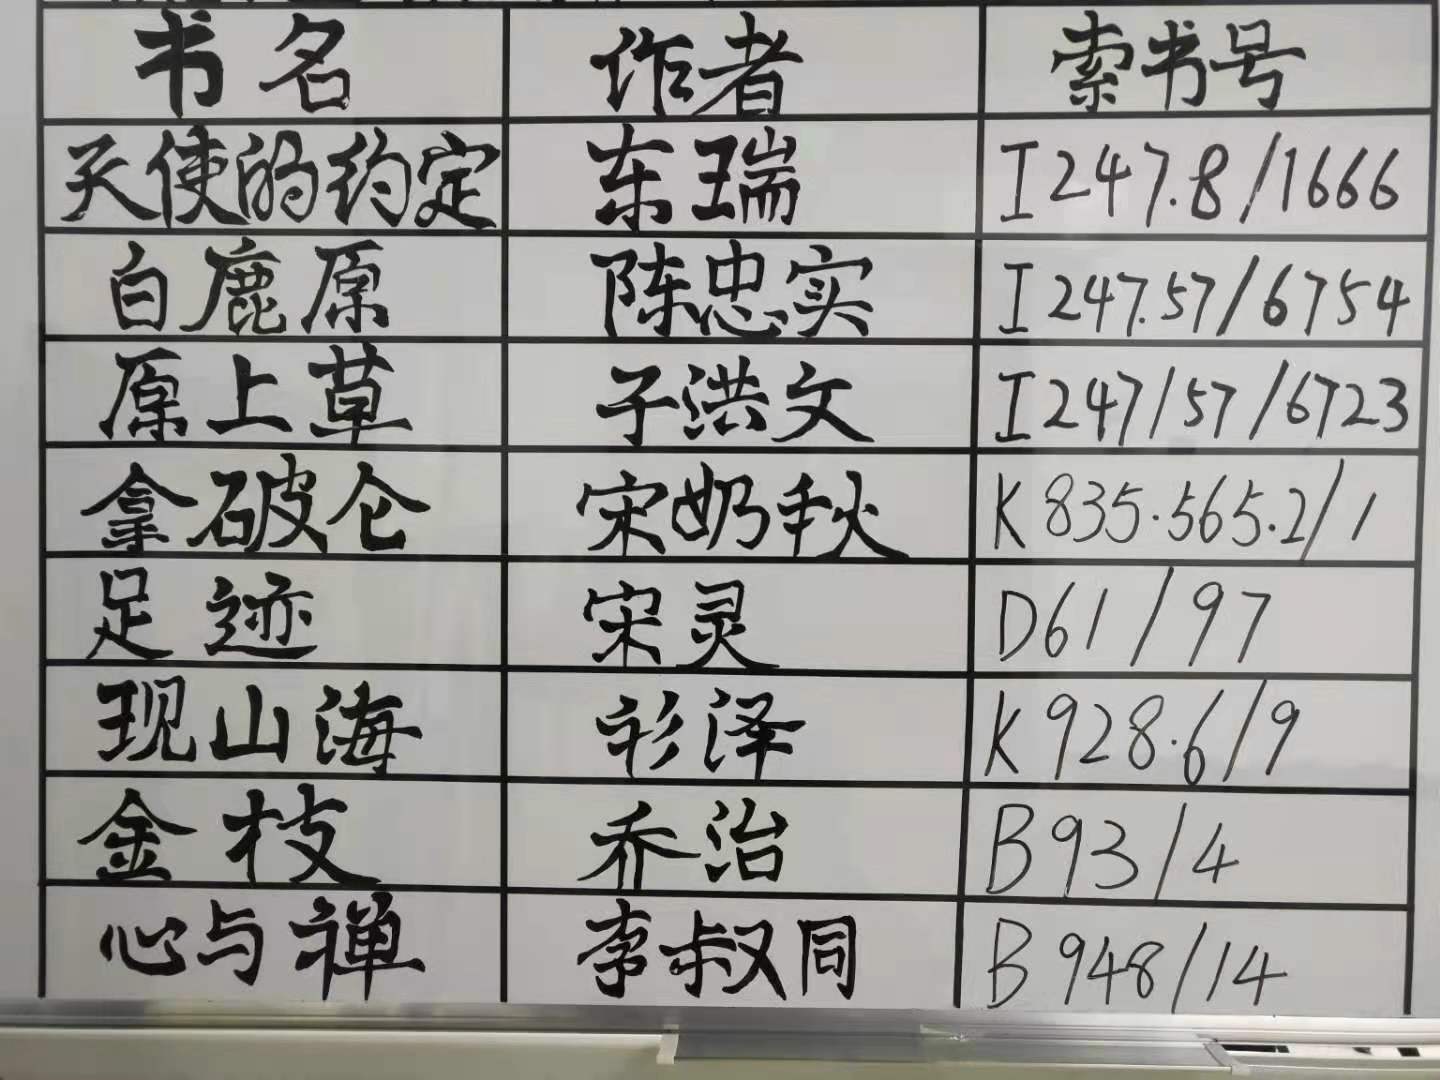 书名 作者 索书号
天使的约定 东瑞 I247.8/1666
白鹿原 陈忠实 I247.57/6754
原上草 子洪文 I247/57/6723
拿破仑 宋奶秋 K835.565.2/1
足迹 宋灵 D61/97
现山海 衫泽 K928.6/9
金枝 乔治 B93/4
心与禅 李叔同 B948/14